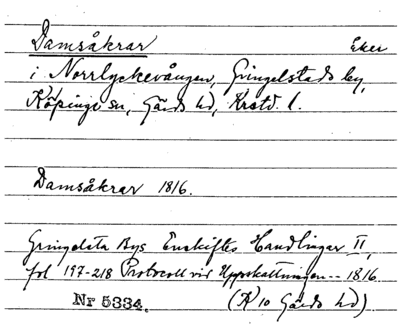 Damsåkrar Eker
i Norrlyckevången, Gringelstads by,
Köpinge sn, Gärds hd, Krstd. l.
Damsåkrar 1816.
Gringelsta Bys Enskiftes Handlingar II,
fol 197-218 Protocoll vid Uppskattningen -- 1816
Nr 5334. (K 10 Gärds hd)